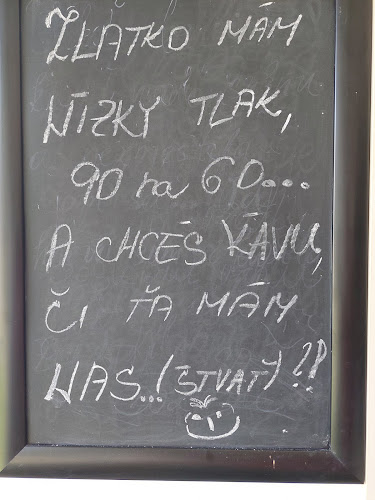 ZLATKO MÁM
NÍZKY TLAK,
90 na 60...
A CHCEŠ KÁVU,
ČI ŤA MÁM
NAS...(ŠTVAŤ)??